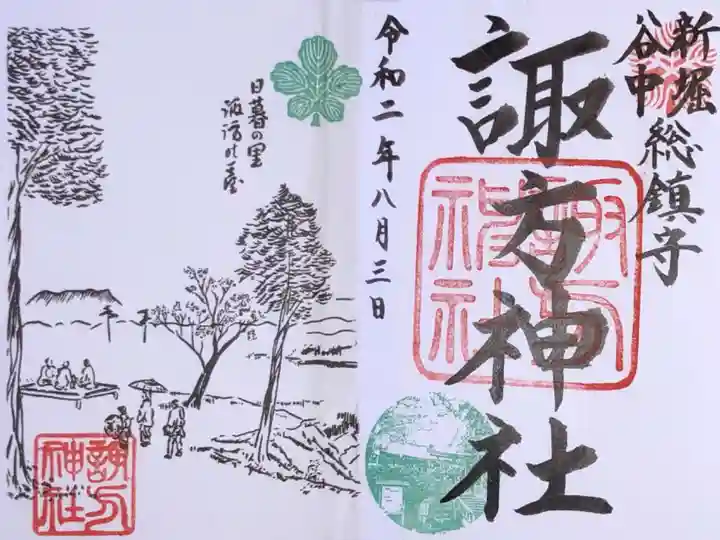 新堀
谷中
総鎮守
諏方神社
諏方神社
令和二年八月三日
日暮の里
諏訪の臺
諏方神社